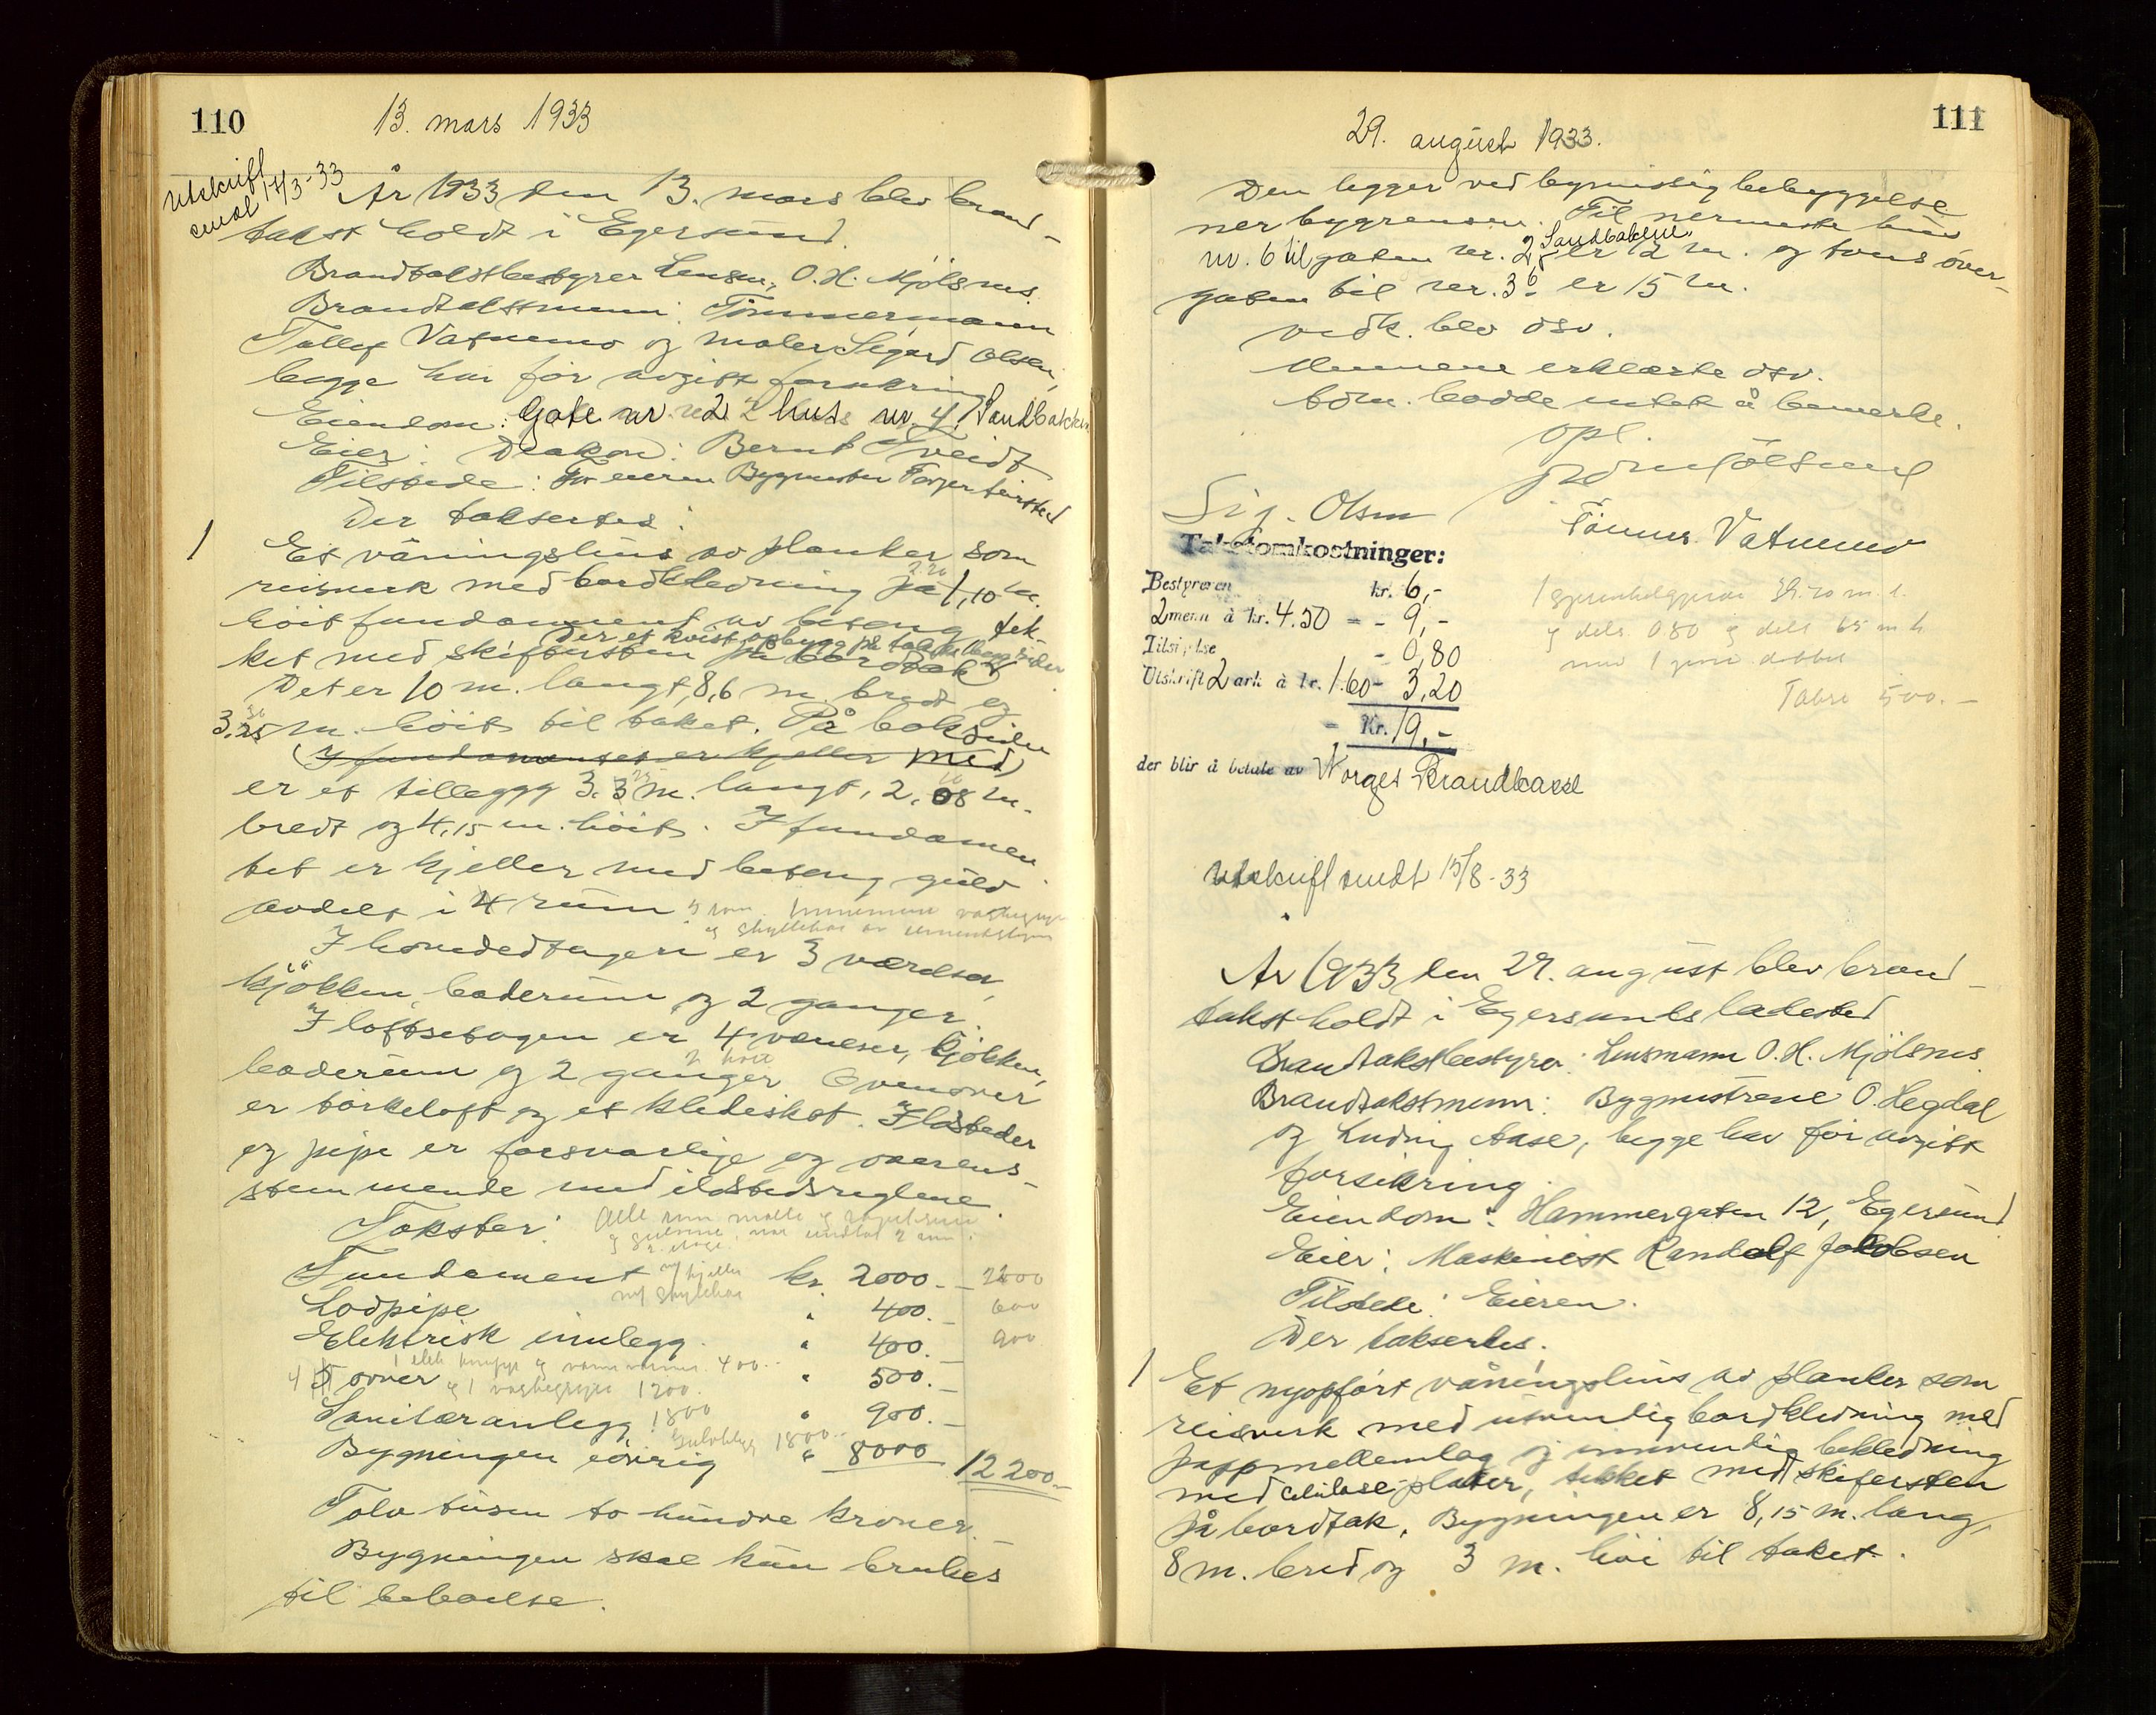 110
13. mars 1933
Utskrift
sendt 17/3-33
År 1933 den 13. mars blev brand-
takst holdt i Egersund.
Brandtakstbestyrer Lensm. O. H. Mjølsnes.
Brandtakstmenn: Tømmermann
Tollef Vatnemo og maler Sigurd Olsen,
begge har før avgitt forsikring
Eiendom: Gate nr 2 hus nr. 4, Sandbakken
Eier: Diakon: Bernt Tveidt
Tilstede: For eieren Bygmester Torger
Der taksertes:
1 Et våningshus av planker som
reisverk med bordkledning på 1,10 m.
høit fundament av betong, tek-
der et kvist opbygg på taket begge sider
ket med skifersten på bordtak
Det er 10 m. langt, 8,6 m bredt og
3.25 m. høit til taket. På baksiden
(I fundamentet er kjeller med)
er et tillegg 3.3 m. langt, 2,08 m.
bredt og 4,15 m. høit. I fundamen
tet er kjeller med betong gulv
avdelt i 4 rum
og skyllekar av
I hovedetagen er 3 værelser,
kjøkken, baderum og 2 ganger.
I loftsetagen er 4 værelser, kjøkken,
baderum og 2 ganger Ovenover
er tørkeloft og et kledeskot. Ildsteder
og pipe er forsvarlige og overens-
stemmende med ildstedsreglene.
Takster:
Fundament kr. 2000.- 2200
m/ kjeller
Lodpipe " 400.- 600
Elektrisk innlegg " 400.- 900
5 ovner " 500.-
og 1 1200.
Sanitæranlegg " 900.-
1800
Bygningen øvrig " 8000 12200.-
Tolv tusen to hundre kroner.
Bygningen skal kun brukes
til beboelse.
111
29. august 1933.
Den ligger ved bymessig bebyggelse
ner bygrensen. Til nermeste hus
nr. 6 til gaten nr. 2 Sandbakken er 12 m. og tvers over
gaten til nr. 36 er 15 m.
vedk. blev osv.
Mennene erklærte osv.
kom. hadde intet å bemerke.
opl.
O H Mjølsnes
Sig. Olsen
Tønnes Vatnemo
Takstomkostninger:
Bestyreren kr. 6,-
2 menn à kr. 4.50 = - 9,-
Tilsigelse - 0,80
Utskrift 2 ark à kr. 1.60 - 3,20
= Kr. 19,-
der blir å betale av Norges Brandkasse
og dels 0.80 og dels 65 m h
Takst 500.-
Utskrift sendt 15/8-33
År 1933 den 29. august blev brand-
takst holdt i Egersunds ladested
Brandtakstbestyrer: Lensmann O. H. Mjølsnes.
Brandtakstmenn: Bygmestrene O. Hegdal
og Ludvig Aase, begge har før avgitt
forsikring.
Eiendom: Hammergaten 12, Egersund
Eier: Maskinist Randolf Jakobsen
Tilstede: Eieren.
Der taksertes.
1 Et nyopført våningshus av planker som
reisverk med utvendig bordkledning med
pappmellemlag og innvendig bekledning
med celulose plater, tekket med skifersten
på bordtak. Bygningen er 8,15 m. lang,
8 m. bred og 3 m. høi til taket.